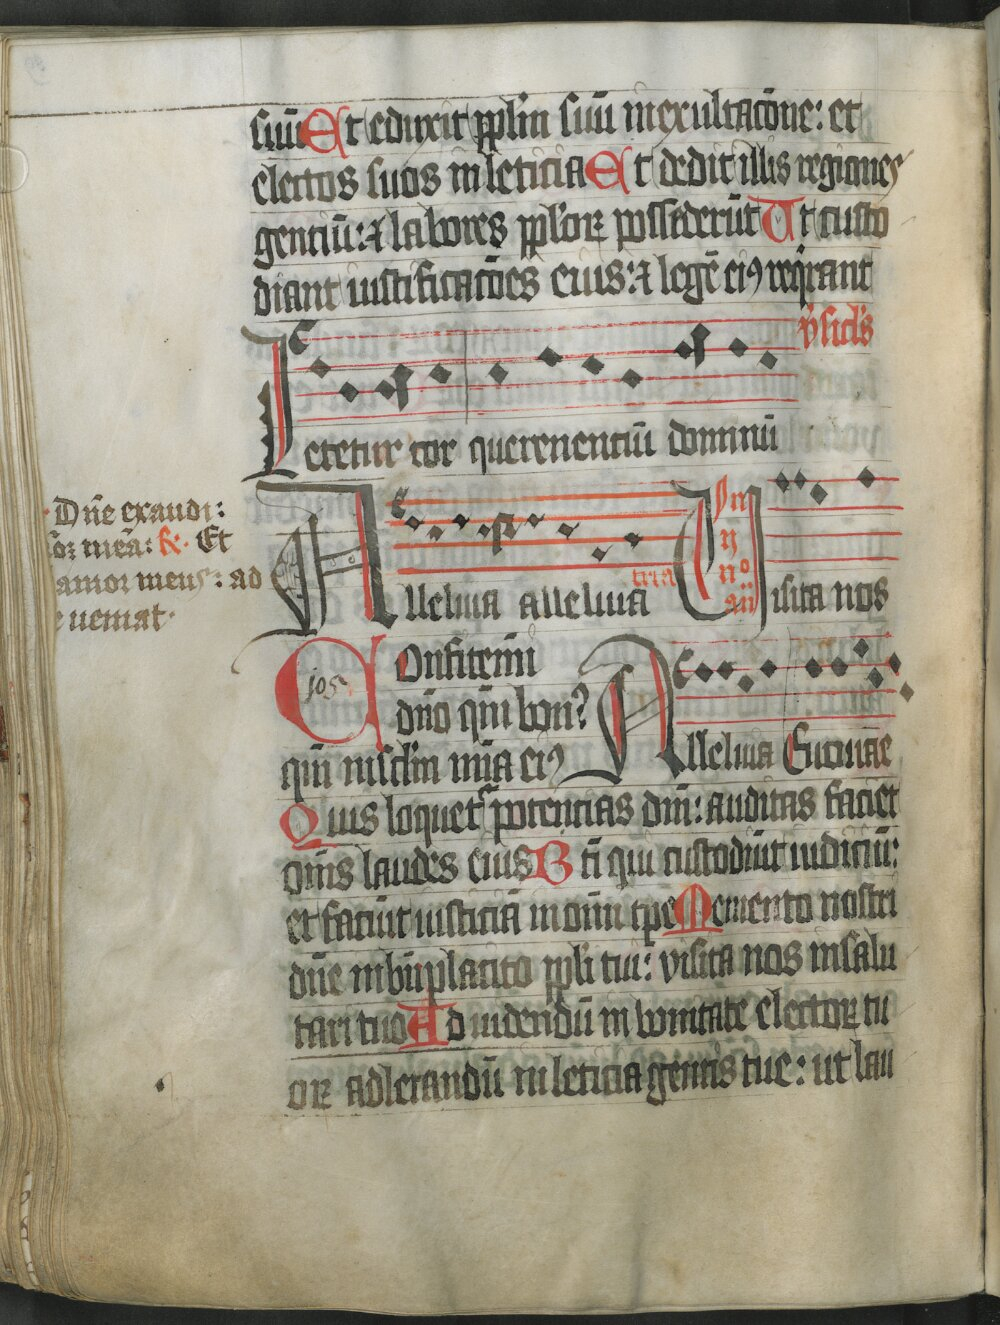 suū Et eduxit pplm suū inexultacōne: et
electos suos in leticia Et dedit illis regiones
gentiū: ⁊ labores pplorꝝ possederūt Ut custo
diant iustificacōes eius: ⁊ legē eiꝯ reqrant
v̓sicl's
Letetur cor querenentiū dominū
Dn̄e exaudi:
meā: Et
amor meus: ad
ueniat.
Alleluia alleluia
Uisita nos
105
Confitemi
dn̄o qm̄ bonꝯ
qm̄ in sclm mīa eiꝯ
Alleluia Euouae
Quis loquet' potencias dnī: auditas faciet
om̄s laudes eius Bti qui custodiūt iudiciū:
et faciūt iusticiā in omī tpe Memento nostri
dn̄e in bn̄placito ppli tui: visita nos in salu
tari tuo Ad uidendū in bonitate electorꝝ tu
orꝝ adletandū in leticia gentis tue: ut lau